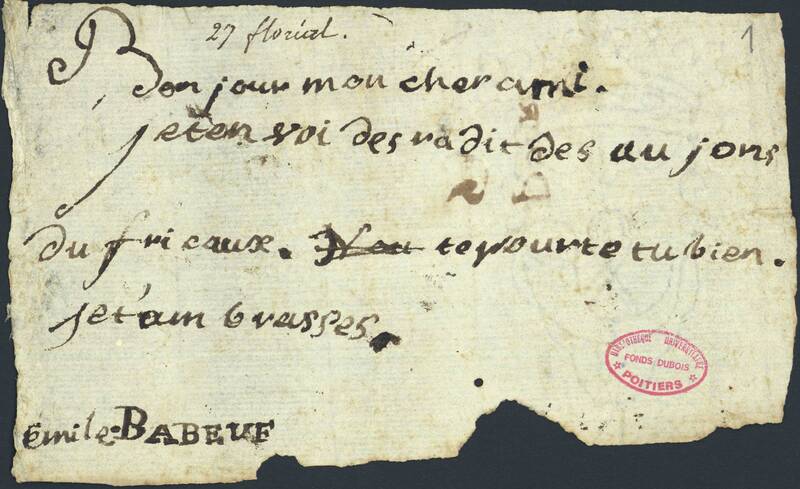 27 floréal.
1
Bonjour mon cher ami.
je ten voi des radit des au jons
du fricaux. te pourte tu bien.
je t'am brasses.
BIBLIOTHEQUE UNIVERSITAIRE
FONDS DUBOIS
POITIERS
émile BABEUF